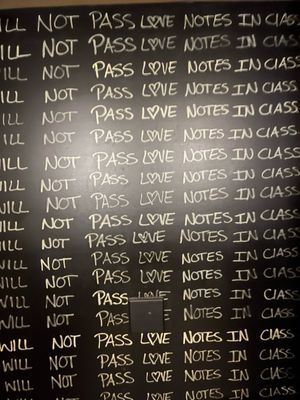 ILL NOT PASS L♡VE NOTES IN CLASS
ILL NOT PASS L♡VE NOTES IN CLASS
ILL NOT PASS L♡VE NOTES IN CLASS
ILL NOT PASS L♡VE NOTES IN CLASS
ILL NOT PASS L♡VE NOTES IN CLASS
ILL NOT PASS L♡VE NOTES IN CLASS
ILL NOT PASS L♡VE NOTES IN CLASS
ILL NOT PASS L♡VE NOTES IN CLASS
ILL NOT PASS L♡VE NOTES IN CLASS
ILL NOT PASS L♡VE NOTES IN CLASS
ILL NOT PASS L♡VE NOTES IN CLASS
ILL NOT PASS L♡VE NOTES IN CLASS
ILL NOT PASS L♡VE NOTES IN CLASS
ILL NOT PASS L♡VE NOTES IN CLASS
ILL NOT PASS NOTES IN CLASS
WILL NOT PASS L♡VE NOTES IN CLASS
WILL NOT PASS L♡VE NOTES IN CLASS
WILL NOT PASS L♡VE NOTES IN CLASS